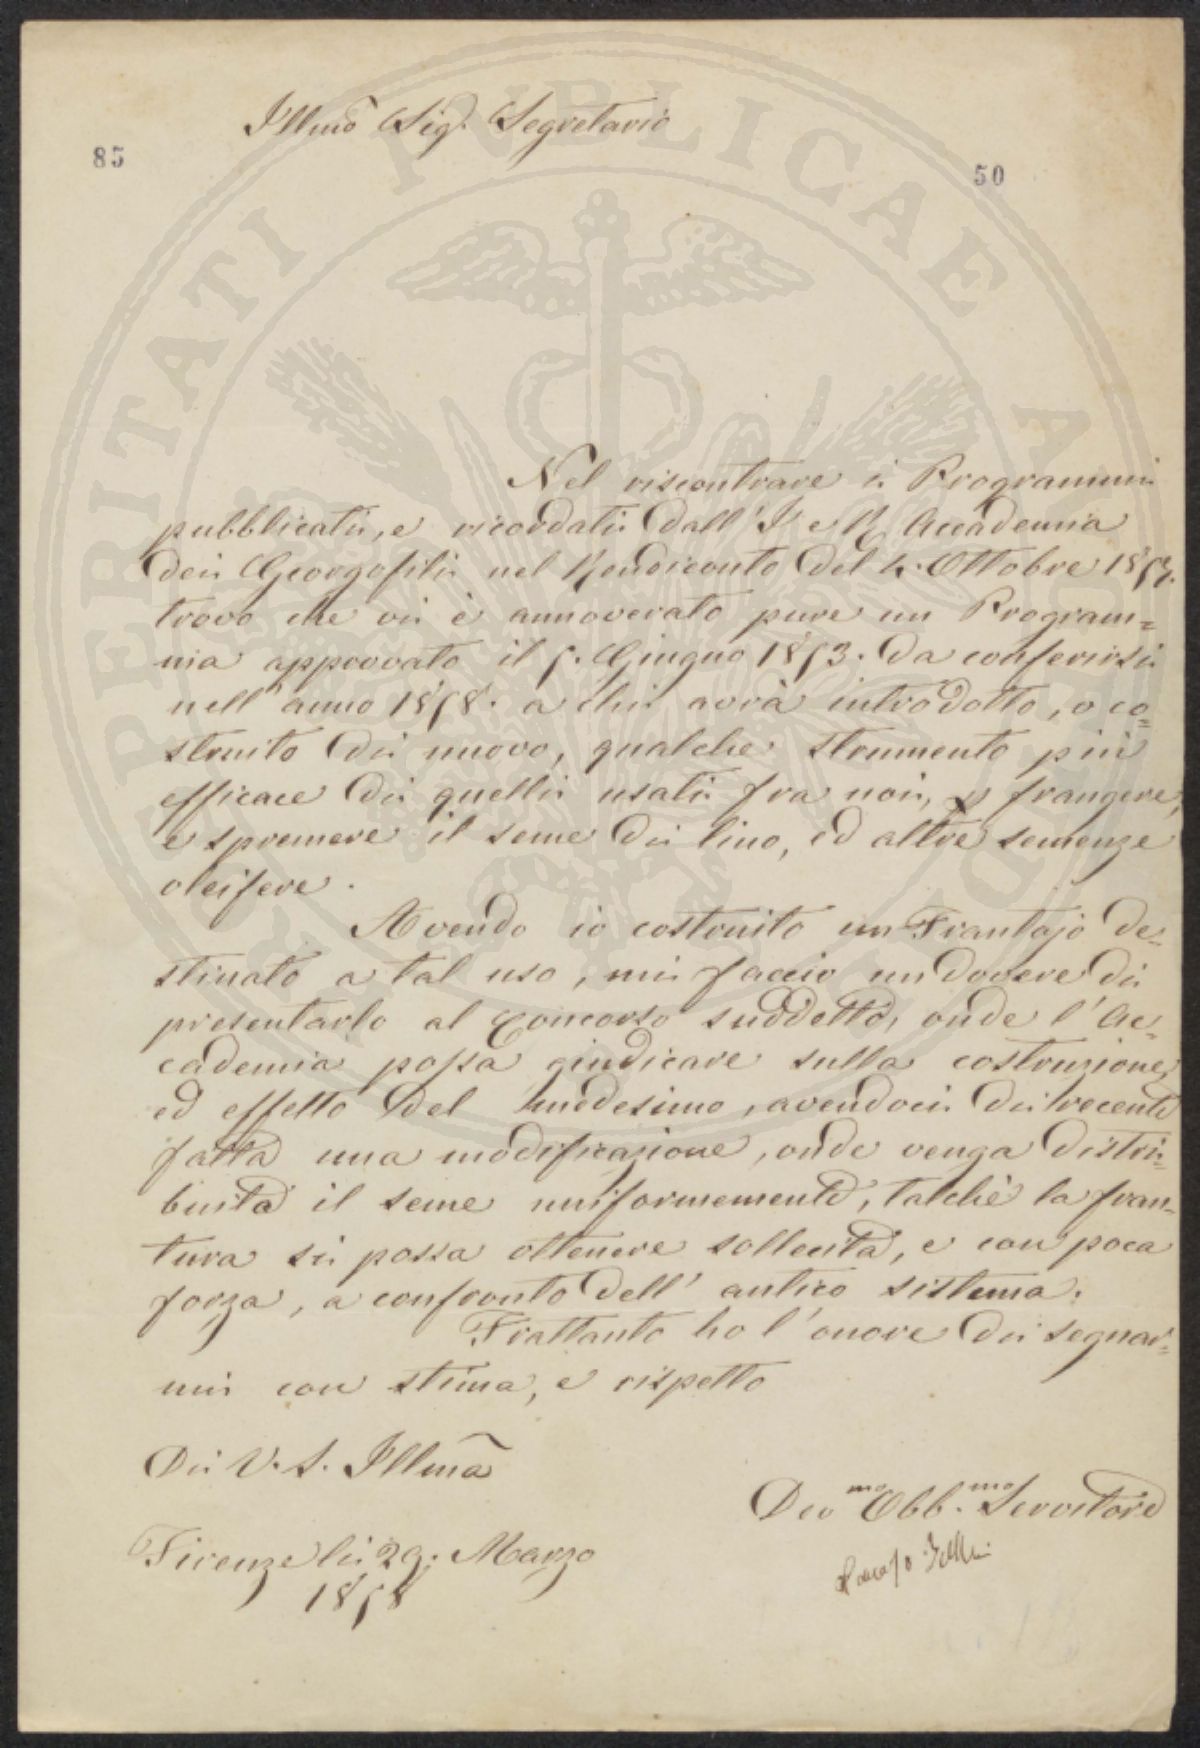 Illmo Sig. Segretario
85
50
Nel riscontrare i Programmi
pubblicati, e ricordati dall' I e R Accademia
dei Georgofili nel Rendiconto del 4. Ottobre 1857.
trovo che vi è annoverato pure un Program=
ma approvato il 5. Giugno 1853. da conferirsi
nell' anno 1858. a chi avrà introdotto, o co=
struito di nuovo, qualche strumento più
efficace di quelli usati fra noi, p frangere,
e spremere il seme di lino, ed altre semenze
oleifere.
Avendo io costruito un Frantojo de=
stinato a tal uso, mi faccio un dovere di
presentarlo al Concorso suddetto, onde l' Ac=
cademia possa giudicare sulla costruzione,
ed effetto del medesimo, avendoci di recente
fatta una modificazione, onde venga distri=
buita il seme uniformemente, talchè la fran=
tura si possa ottenere sollecita, e con poca
forza, a confronto dell' antico sistema.
Frattanto ho l' onore di segnar=
mi con stima, e rispetto
Di V. S. Illma
Dev mo Obb. mo Servitore
Firenze li 29. Marzo
1858
PERITATI PUBLICAE